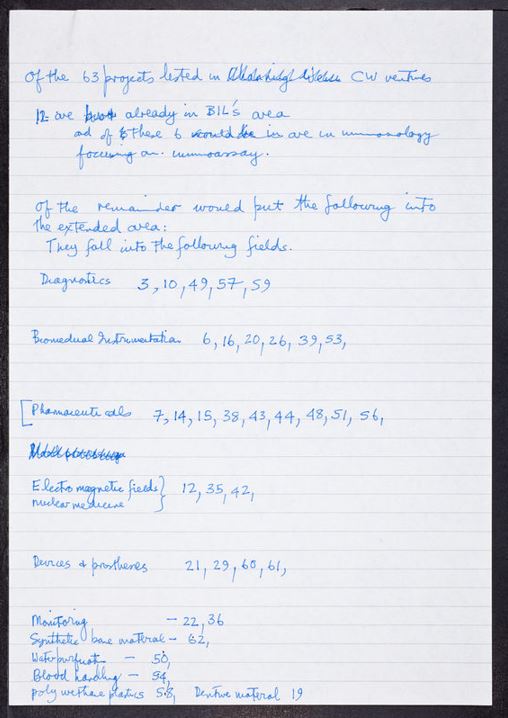 Of the 63 projects listed in CW ventures
12 are already in BIL's area
and of these 6 are in immunology
focusing on immunoassay.
Of the remainder would put the following into
the extended area:
They fall into the following fields.
Diagnostics 3, 10, 49, 57, 59
Biomedical Instrumentation 6, 16, 20, 26, 39, 53,
[Pharmaceuticals 7, 14, 15, 38, 43, 44, 48, 51, 56,
Electro magnetic fields } 12, 35, 42,
nuclear medicine
Devices & prostheses 21, 29, 60, 61,
Monitoring — 22, 36
Synthetic bone material — 62,
Water — 50,
Blood handling — 54,
poly urethane plastics 58, Dentive material 19